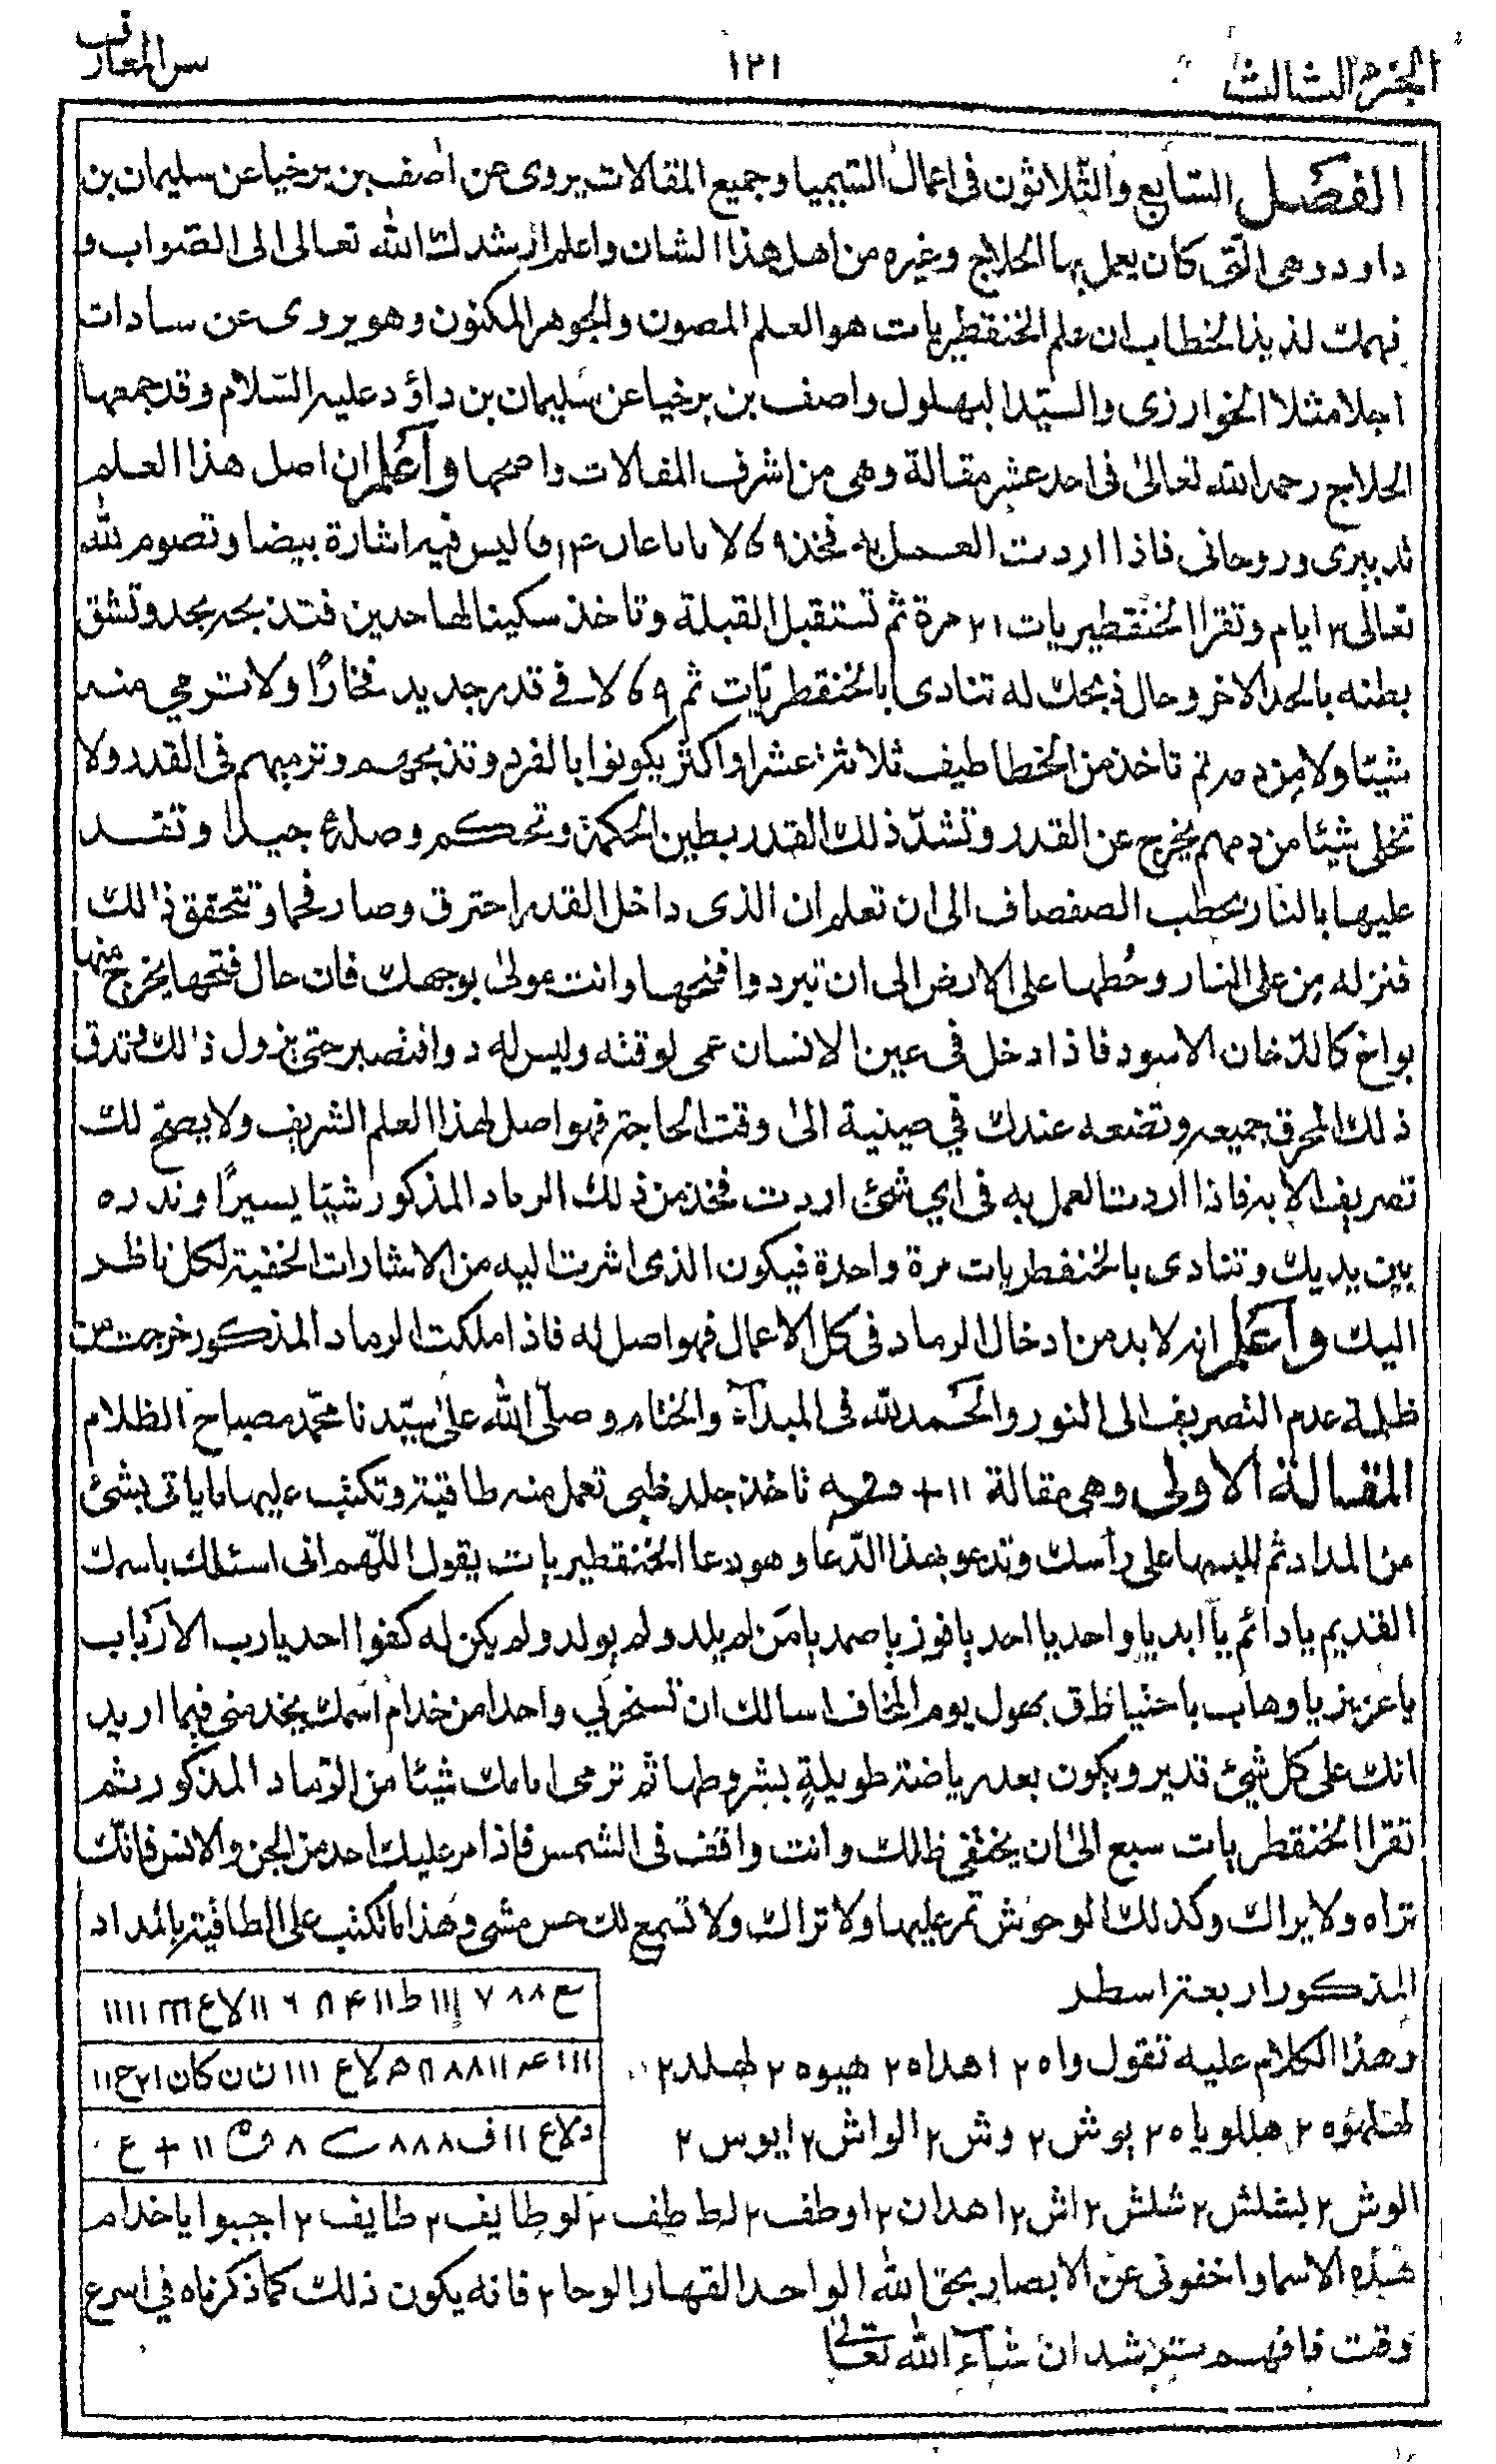 الجزء الثالث
١٢١
س المعارف
الفصل السابع والثلاثون في اعمال السيميا وجميع المقالات يروى عن اصف بن برخيا عن سليمان بن
داود وهى التى كان يعمل بها الحلاج وغيره من اهل هذا الشان واعلم ارشدك الله تعالى الى الصواب و
فهمك لذيذ الخطاب ان علم الخنقطيريات هو العلم المصون والجوهر المكنون وهو يروى عن سادات
اجلا مثلا الخوارزى والسيد البهلول واصف بن برخيا عن سليمان بن داؤد عليه السلام وقد جمعها
الحلاج رحمه الله تعالى في احد عشر مقالة وهى من اشرف المقالات واصحها وآعلم ان اصل هذا العلم
تدبيرى وروحانى فاذا اردت العمل به فخذ ليس فيه اشارة بيضا وتصوم لله
تعالى ٣ ايام وتقرا الخنقطيريات ٢١ مرة ثم تستقبل القبلة وتاخذ سكينا لها حدين فتذبحه بحد وتشق
بطنه بالحد الاخر وحال ذبحك له تنادى بالخنقطريات ثم في قدر جديد فخارًا ولا ترمي منه
شيئا ولا من دمه ثم تاخذ من الخطاطيف ثلاثة عشر او اكثر يكونوا بالفرد وتذبحهم وترميهم في القدر ولا
تخلى شيئا من دمهم يخرج عن القدر وتشدّ ذلك القدر بطين الحكمة وتحكم وصله جيدا وتقد
عليها بالنار بحطب الصفصاف الى ان تعلم ان الذى داخل القدر احترق وصار فحما وتتحقق ذلك
فنزله من على النار وحُطها على الارض الى ان تبرد وافتحها وانت مولى بوجهك فان حال فتحها يخرج منها
بواخ كالدخان الاسود فاذا دخل فى عين الانسان عمى لوقته وليس له دوا فتصبر حتى يزول ذلك وتدق
ذلك المحرق جميعه وتضعه عندك في صينية الى وقت الحاجة فهو اصل لهذا العلم الشريف ولا يصح لك
تصريف الا به فاذا اردت العمل به فى اي شئ اردت فخذ من ذلك الرماد المذكور شيئا يسيرًا وتدره
بين يديك وتنادى بالخنقطريات مرة واحدة فيكون الذى اشرت اليه من الاشارات الخفية لكل ناظر
اليك وآعلم انه لا بد من ادخال الرماد فى كل الاعمال فهو اصل له فاذا ملكت الرماد المذكور خرجت من
ظلمة عدم التصريف الى النور والحمد لله فى المبدآء والختام وصلى الله على سيدنا محمد مصباح الظلام
المقالة الاولى وهى مقالة تاخذ جلد ظبى تعمل منه طاقية وتكتب عليها ما ياتى بشئ
من المداد ثم البسها على رأسك وتدعو بهذا الدّعا وهو دعا الخنقطيريات يقول اللّهم انى اسئلك باسمك
القديم يا دائم يا ابد يا واحد يا احد يا فوز يا صمد يا من لم يلد ولم يولد ولم يكن له كفوا احد يا رب الارباب
يا عزيز يا وهاب بهول يوم المخاف اسالك ان تسخر لي واحدا من خدام اسمك يخدمنى فيما اريد
انك على كل شيئ قدير ويكون بعد رياضة طويلة بشروطها ثم ترمى امامك شيئا من الرماد المذكور ثم
تقرا الخنقطريات سبع الى ان يختفى ظلك وانت واقف فى الشمس فاذا مر عليك احد من الجن والانس فانك
تراه ولا يراك وكذلك الوحوش تمر عليها ولا تراك ولا تسمع لك حس مشى وهذا ما تكتب على الطاقية بالمداد
المذكور اربعة اسطر
وهذا الكلام عليه تقول واه ٢ اهداه ٢ هيوه ٢ طهلد ٢
هللوياه ٢ بوش ٢ وش ٢ الواش ٢ ايوس ٢
الوش ٢ بشلش ٢ شلش ٢ اش ٢ اهدان ٢ اوطف ٢ لططف ٢ لوطايف ٢ طايف ٢ اجيبوا يا خدام
هذه الاسما واخفونى عن الابصار بحق الله الواحد القهار الوحا ٢ فانه يكون ذلك كما ذكرناه في اسرع
وقت فافهم سترشد ان شآء الله تعالى